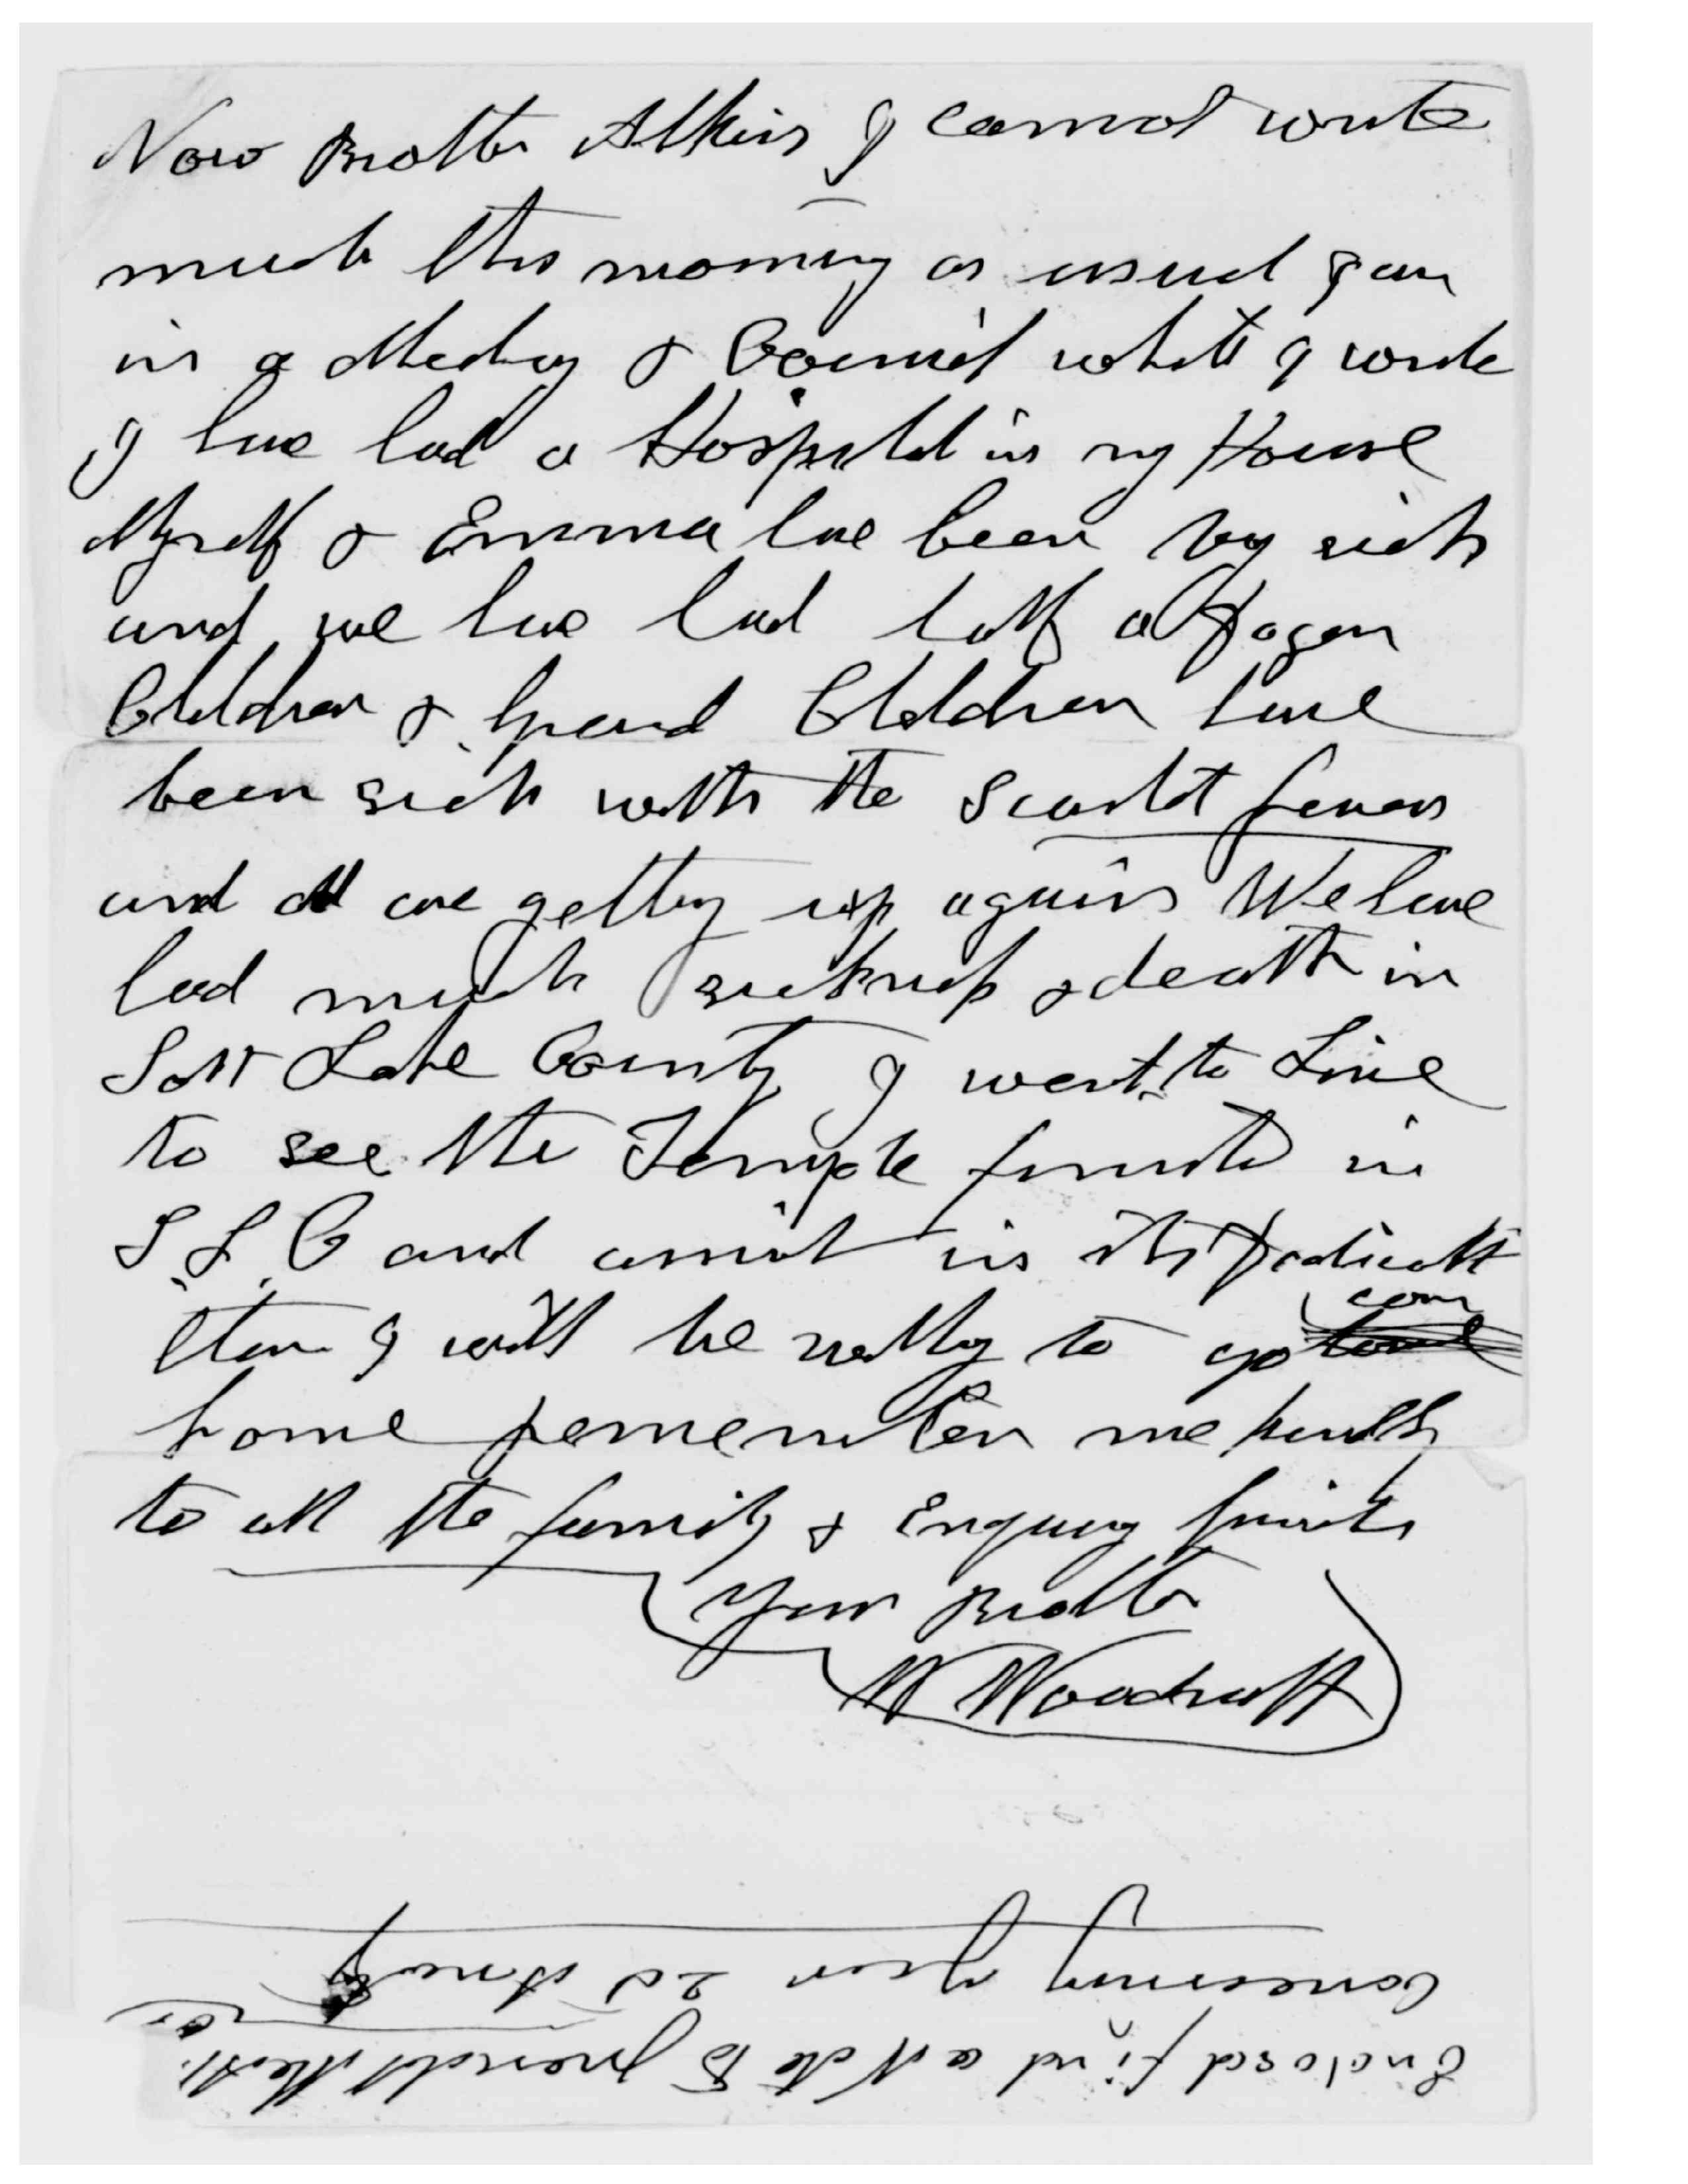 Now Brother Atkin I cannot write
much this morning as usual I am
in a Meeting & Council while I write
I have had a Hospital in my House
Myself & Emma have been very sick
and we have had half a Dozen
Children & Grand Children have
been sick with the Scarlet fever
and all are getting up again We have
had much sickness & death in
Salt Lake County I want to Live
to see the Temple finished in
S. L. C and assist in its Dedicatn
then I will be willing to go
home Remember me kindly
to all the family & Enquiring friends
Your Brother
W Woodruff
Enclosed find a Note to President McAllister
Concerning your 2d Annointg